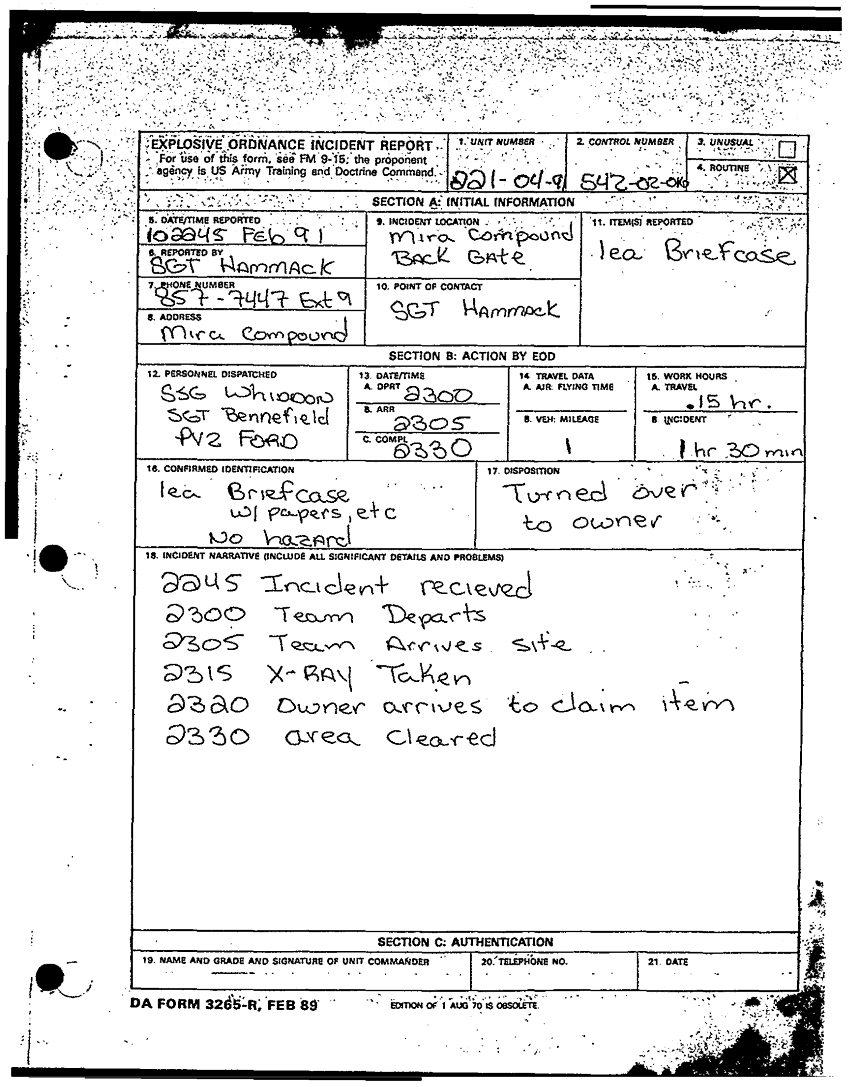 EXPLOSIVE ORDNANCE INCIDENT REPORT
For use of this form, see FM 9-15; the proponent
agency is US Army Training and Doctrine Command.
1. UNIT NUMBER
221-04-91
2. CONTROL NUMBER
542-02-
3. UNUSUAL
4. ROUTINE
SECTION A: INITIAL INFORMATION
5. DATE/TIME REPORTED
102245 Feb 91
6. REPORTED BY
SGT HAMMACK
7. PHONE NUMBER
857-7447 Ext 9
8. ADDRESS
Mira Compound
9. INCIDENT LOCATION
Mira Compound
BACK GATE
10. POINT OF CONTACT
SGT HAMMACK
11. ITEM(S) REPORTED
1ea Briefcase
SECTION B: ACTION BY EOD
12. PERSONNEL DISPATCHED
SSG Whiddon
SGT Bennefield
PV2 FORD
13. DATE/TIME
A. DPRT 2300
B. ARR
2305
C. COMPL
2330
14. TRAVEL DATA
A. AIR: FLYING TIME
B. VEH: MILEAGE
1
15. WORK HOURS
A. TRAVEL
.15 hr.
B. INCIDENT
1 hr 30 min
16. CONFIRMED IDENTIFICATION
1ea Briefcase
w/ papers, etc
No hazard
17. DISPOSITION
Turned over
to owner
18. INCIDENT NARRATIVE (INCLUDE ALL SIGNIFICANT DETAILS AND PROBLEMS)
2245 Incident recieved
2300 Team Departs
2305 Team Arrives site
2315 X-RAY Taken
2320 Owner arrives to claim item
2330 area Cleared
SECTION C: AUTHENTICATION
19. NAME AND GRADE AND SIGNATURE OF UNIT COMMANDER
20. TELEPHONE NO.
21. DATE
DA FORM 3265-R, FEB 89
EDITION OF 1 AUG 70 IS OBSOLETE.